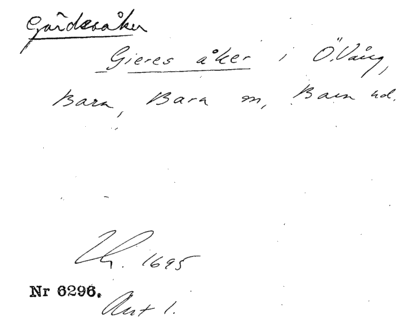 Gårdsåker
Gieres åker i Ö. Vång,
Bara, Bara sn, Bara hd.
Lh. 1695
Nr 6296.
Ant 1.